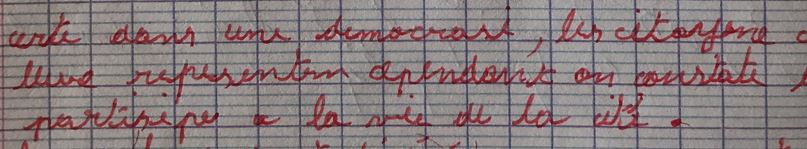 certe dans une democrasi, les citoyene
leurs representan cependant on constate
partisipe a la vie de la cité.